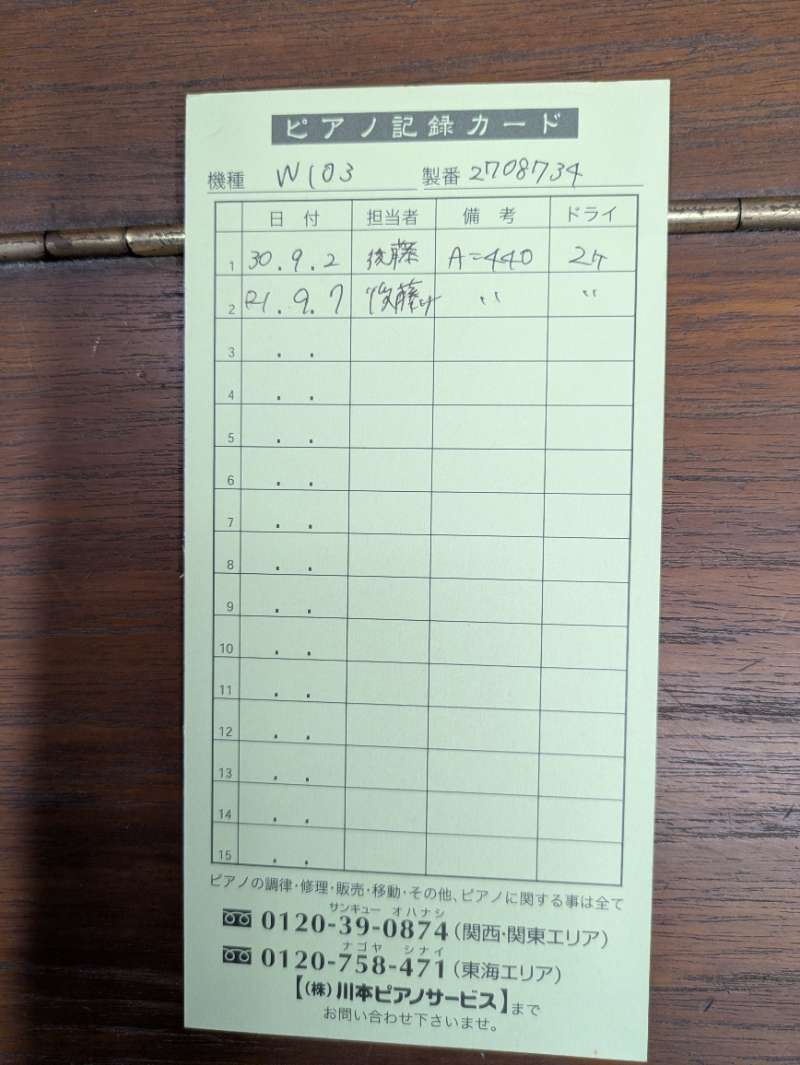 ピアノ記録カード
機種 W103 製番 2708734
日付 担当者 備考 ドライ
1 30.9.2 後藤 A=440 2ケ
2 R1.9.7 後藤 〃 〃
3 . .
4 . .
5 . .
6 . .
7 . .
8 . .
9 . .
10 . .
11 . .
12 . .
13 . .
14 . .
15 . .
ピアノの調律・修理・販売・移動・その他、ピアノに関する事は全て
サンキュー オハナシ
0120-39-0874(関西・関東エリア)
ナゴヤ シナイ
0120-758-471(東海エリア)
【(株)川本ピアノサービス】まで
お問い合わせ下さいませ。